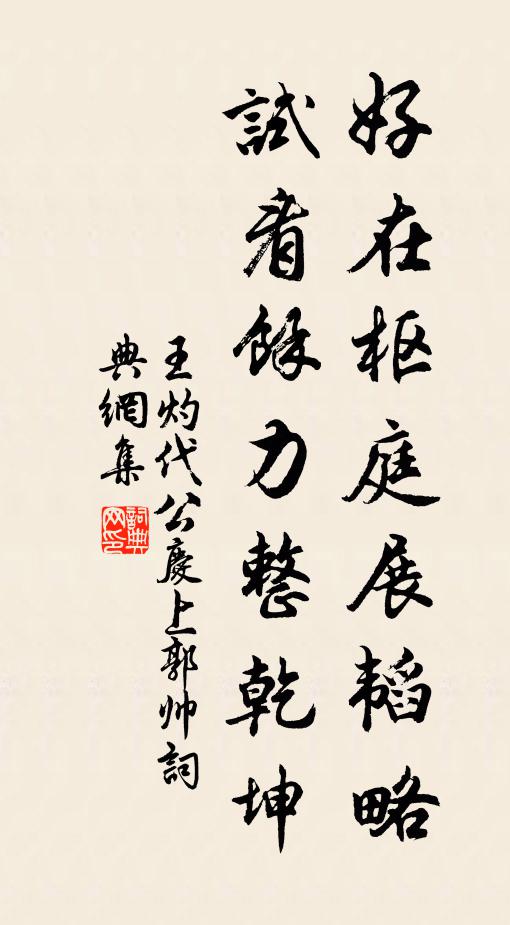 好在枢庭展韬略
試看餘力整乾坤
王灼代公慶上郭帅詞
典網集
詞典网印